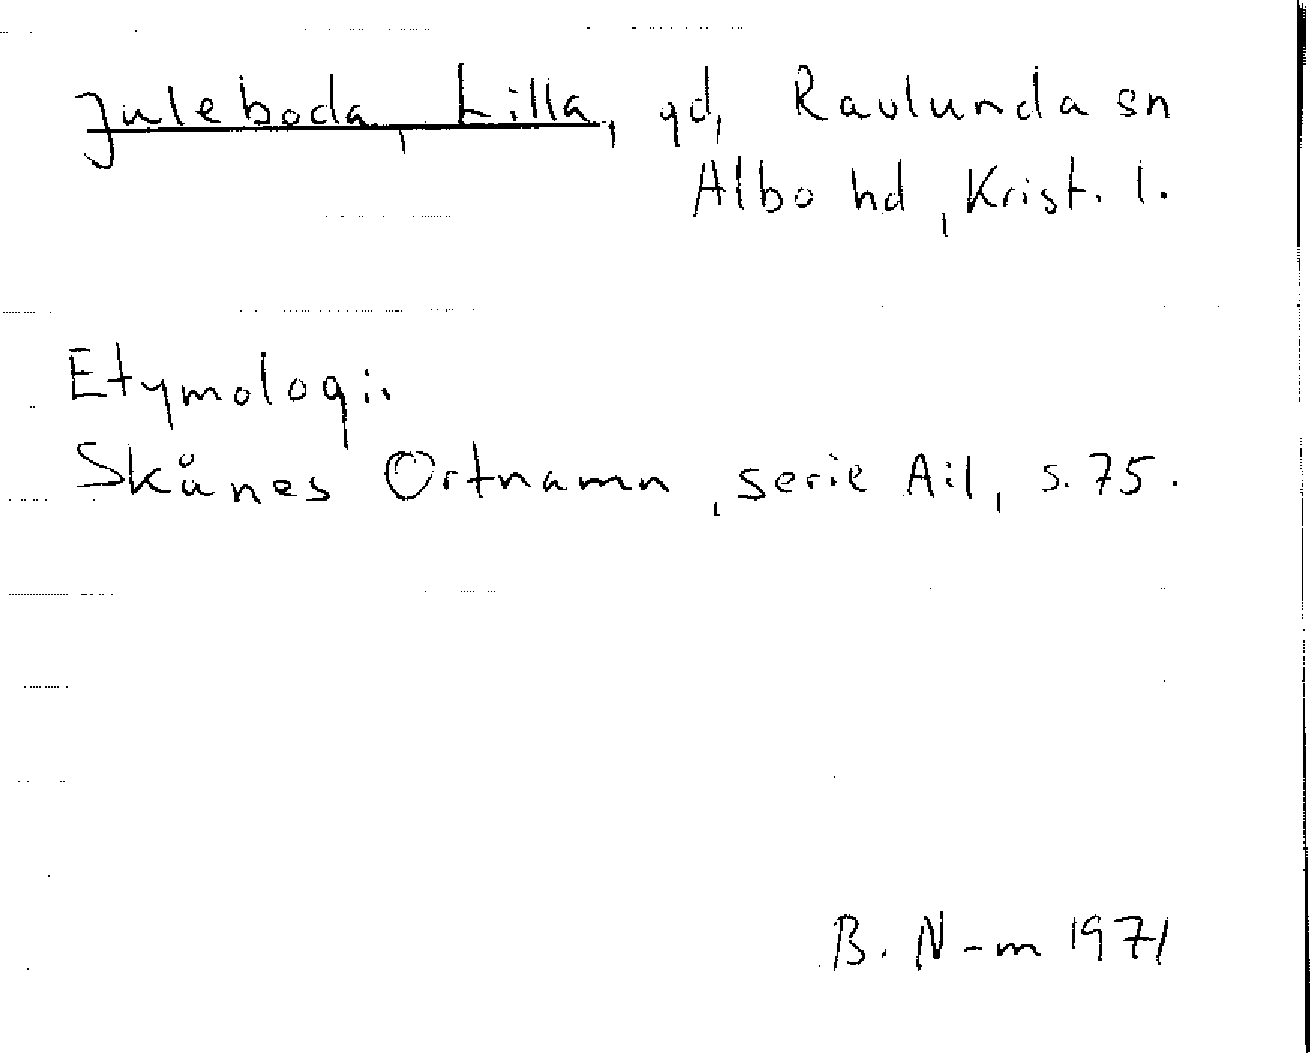 Juleboda, Lilla, gd, Ravlunda sn
Albo hd, Krist. l.
Etymologi.
Skånes Ortnamn, serie A:1, s. 75.
B. N-m 1971